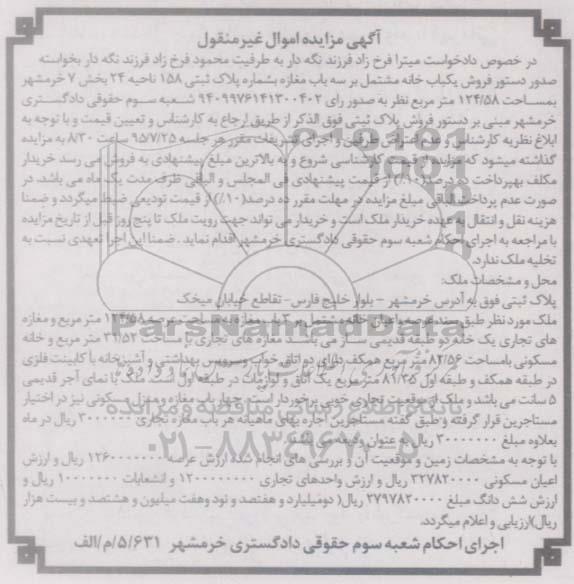 آگهی مزایده اموال غیر منقول
در خصوص دادخواست میترا فرخ زاد فرزند نگه دار به طرفیت محمود فرخ زاد فرزند نگه دار بخواسته
صدور دستور فروش یکباب خانه مشتمل بر سه باب مغازه بشماره پلاک ثبتی ۱۵۸ ناحیه ۲۴ بخش ۷ خرمشهر
بمساحت ۱۲۴/۵۸ متر مربع نظر به صدور رای ۹۴۰۹۹۷۶۱۴۱۳۰۰۴۰۲ شعبه سوم حقوقی دادگستری
خرمشهر مبنی بر دستور فروش پلاک ثبتی فوق الذکر از طریق ارجاع به کارشناس و تعیین قیمت و با توجه به
ابلاغ نظریه کارشناس و عدم اعتراض طرفین و اجرای تشریفات مقرر هر جلسه ۹۵/۷/۲۵ ساعت ۸/۳۰ به مزایده
گذاشته میشود که مزایده از قیمت کارشناسی شروع و به بالاترین مبلغ پیشنهادی به فروش می رسد خریدار
مکلف بهپرداخت ده درصد (۱۰٪) از قیمت پیشنهادی فی المجلس و الباقی ظرف مدت یک ماه می باشد، در
صورت عدم پرداخت الباقی مبلغ مزایده در مهلت مقرر ده درصد(۱۰٪) از قیمت تودیعی ضبط میگردد و ضمنا
هزینه نقل و انتقال به عهده خریدار ملک است و خریدار می تواند جهت رویت ملک تا پنج روز قبل از تاریخ مزایده
با مراجعه به اجرای احکام شعبه سوم حقوقی دادگستری خرمشهر اقدام نماید . ضمنا این اجرا تعهدی نسبت به
تخلیه ملک ندارد.
محل و مشخصات ملک:
پلاک ثبتی فوق به آدرس خرمشهر - بلوار خلیج فارس- تقاطع خیابان میخک
ملک مورد نظر طبق سند عرصه و اعیان خانه مشتمل بر ۳ باب مغازه به مساحت عرصه ۱۲۴/۵۸ متر مربع و مغازه
های تجاری یک خانه دو طبقه قدیمی ساز می باشد مغازه های تجاری با مساحت ۳۱/۵۲ متر مربع و خانه
مسکونی بامساحت ۸۲/۵۶ متر مربع همکف دارای دو اتاق خواب و سرویس بهداشتی و آشپزخانه با کابینت فلزی
در طبقه همکف و طبقه اول ۸۱/۳۵ متر مربع یک اتاق و لوازمات در طبقه اول است. ملک با نمای آجر قدیمی
۵ سانت می باشد و ملک از موقعیت تجاری خوبی برخوردار است. چهار باب مغازه و منزل مسکونی نیز در اختیار
مستاجرین قرار گرفته و طبق گفته مستاجرین اجاره بهای ماهیانه هر باب مغازه تجاری ۳۰۰۰۰۰۰ ریال در ماه
بعلاوه مبلغ ۳۰۰۰۰۰۰۰ ریال به عنوان ودیعه می باشد
با توجه به مشخصات زمین و موقعیت آن و بررسی های انجام شده ارزش عرصه ریال و ارزش
اعیان مسکونی ۳۲۷۸۲۰۰۰۰ ریال و ارزش واحدهای تجاری ۱۲۰۰۰۰۰۰۰۰ و انشعابات ۱۰۰۰۰۰۰۰ ریال و
ارزش شش دانگ مبلغ ۲۷۹۷۸۲۰۰۰۰ ریال( دومیلیارد و هفتصد و نود وهفت میلیون و هشتصد و بیست هزار
ریال)ارزیابی و اعلام میگردد.
اجرای احکام شعبه سوم حقوقی دادگستری خرمشهر ۵/۶۳۱/م/الف
ParsNamadData
پایگاه اطلاع رسانی مناقصه و مزایده
۰۲۱-۸۸۳۴۹۶۷۰-۵